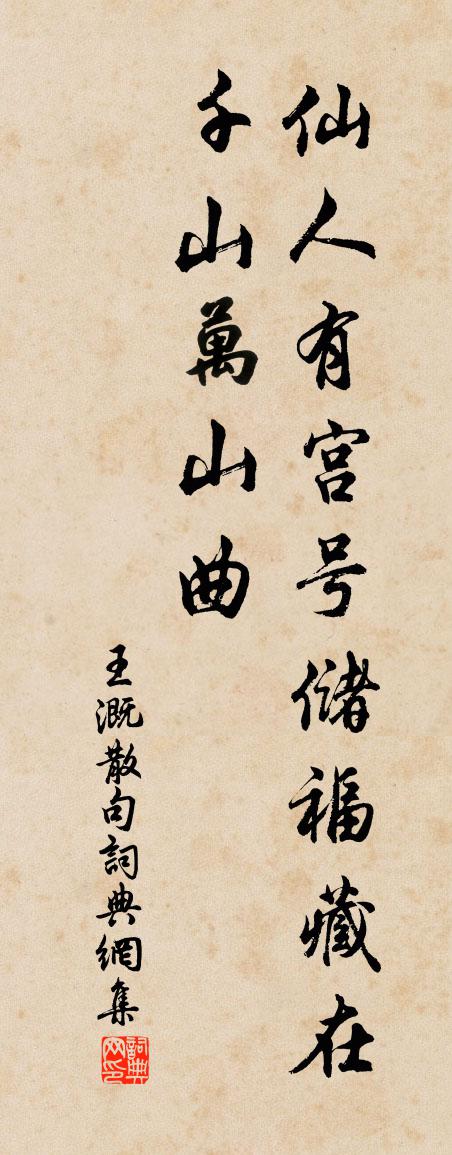 仙人有宫号储福藏在
千山萬山曲
王溉散句詞典網集
詞典网印